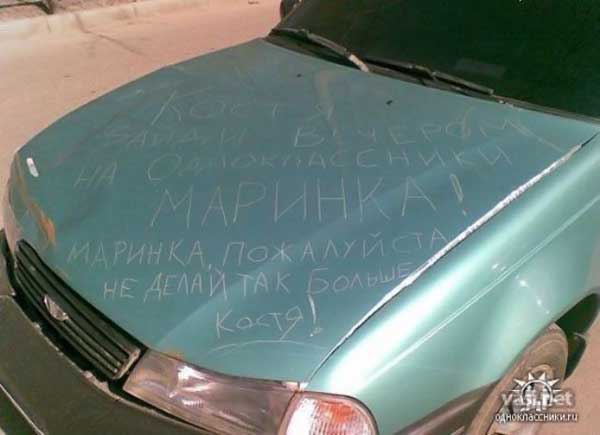 Костя
зайди вечером
на Одноклассники
МАРИНКА!
МАРИНКА, ПОЖАЛУЙСТА
НЕ ДЕЛАЙ ТАК БОЛЬШЕ
Костя!
yasi.net
одноклассники.ru